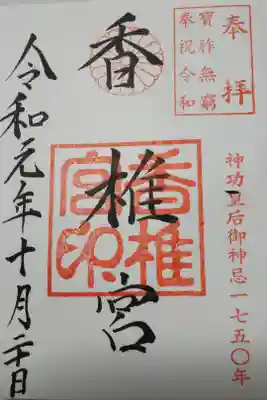 奉拝
寶祚無窮
奉祝令和
神功皇后御神忌一七五〇年
香椎宮
香椎宮印
令和元年十月二十日